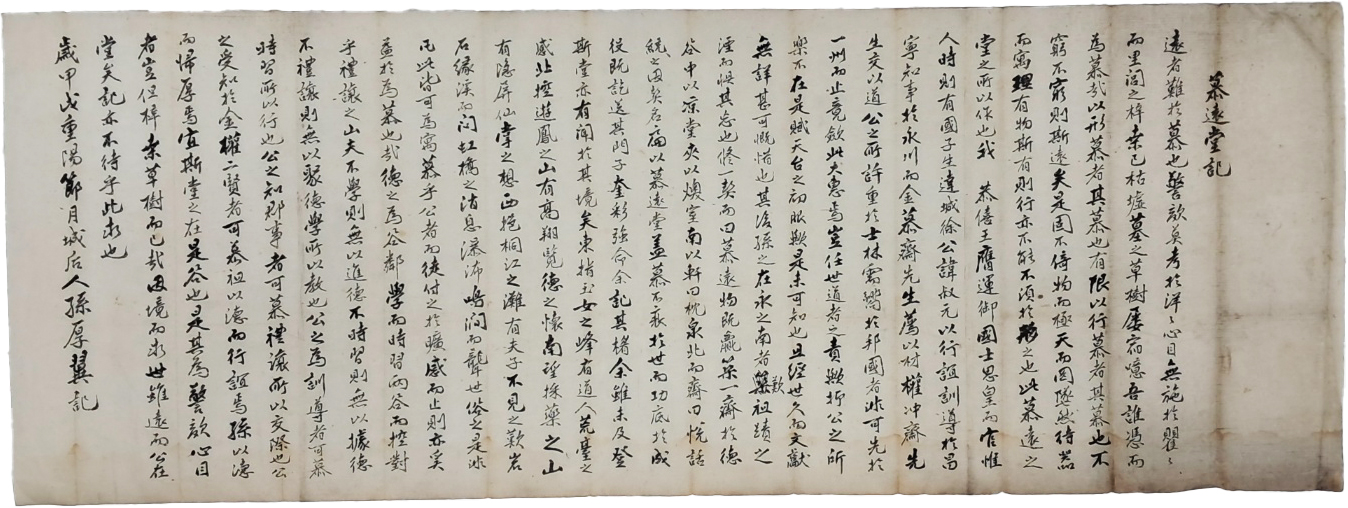 慕遠堂記
遠者難於慕也警欬莫考於洋洋心目無施於瞿瞿
而里閭之梓桑已枯墟墓之草樹屢宿噫吾誰憑而
為慕哉以形慕者其慕也有限以行慕者其慕也不
窮不窮則斯遠矣是固不倚物而極天而罔墜然待器
而寓理有物斯有則行亦不能不須於形之也此慕遠之
堂之所以作也我 恭僖王膺運御國士思皇而官惟
人時則有國子生達城徐公諱叔元以行誼訓導於昌
寧知事於永川而金慕齋先生薦以材權冲齋先
生交以道公之所許重於士林需嚮於邦國者 可先於
一州而止竟歛此大惠焉豈任世道者之責歟抑公之所
樂不在是賦天台之初服歟是未可知也且經世久而文獻
無詳甚可慨惜也其後孫之在永之南者歎築祖蹟之
湮而懼其忘也脩一契而曰慕遠物既羸築一齋於德
谷中以凉堂夾以燠室南以軒曰枕泉北而齋曰悅誌
統之因契名扁以慕遠堂盖慕不衰於世而功底於成
役既訖送其門子奎彩強命余記其楣余雖未及登
斯堂亦有聞於其境矣東指玉女之峰有道人荒臺之
感北控遊鳳之山有高翔覽德之懷南望採藥之山
有隱屏仙掌之想西挹桐江之灘有夫子不見之歎岩
石緣溪而 虹橋之消息瀑沛鳴澗而聾世俗之是非
凡此皆可為寓慕乎公者而徒付之於曠感而止則亦奚
益於為慕也哉德之為谷鄰學而時習兩谷而控對
乎禮讓之山夫不學則無以進德不時習則無以據德
不禮讓則無以聚德學所以教也公之為訓導者可慕
時習所以行也公之知郡事者可慕禮讓所以交際也公
之受知於金權二賢者可慕祖以德而行誼焉孫以德
而帰厚焉宜斯堂之在是谷也是其為警欬心目
者豈但梓桑草樹而已哉因境而求世雖遠而公在
堂矣記亦不待乎此求也
歲甲戌重陽節月城后人孫厚翼記